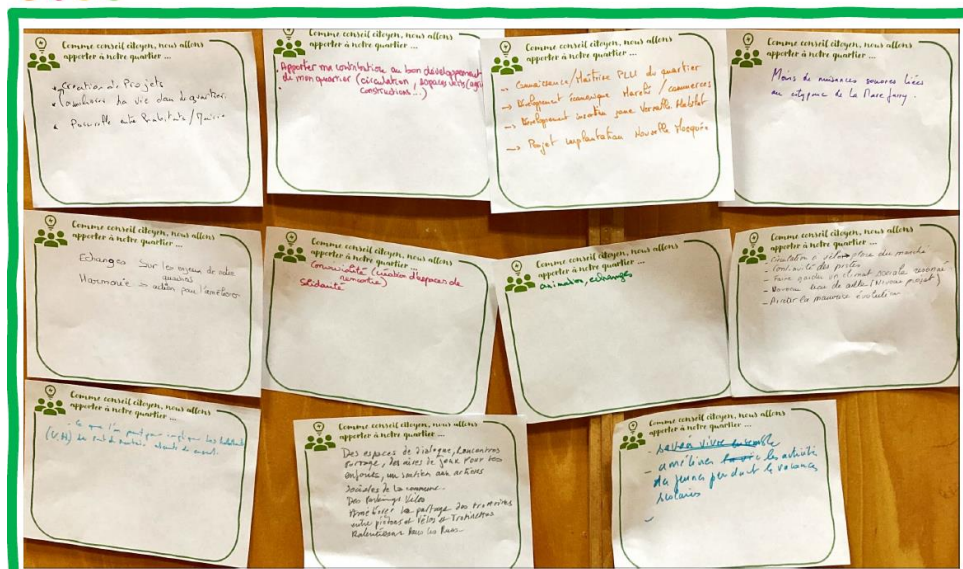 Comme conseil citoyen, nous allons
apporter à notre quartier ...
Création de Projets
la vie dans le quartier
Passerelle entre habitants / Mairie
Comme conseil citoyen, nous allons
apporter à notre quartier ...
Apporter ma contribution au bon développement
de mon quartier (circulation, espaces verts,
constructions...)
Comme conseil citoyen, nous allons
apporter à notre quartier ...
→ Connaissance / Maîtrise PLU du quartier
→ Développement économique Marché / commerces
→ Développement Versailles Habitat
→ Projet implantation Nouvelle Mosquée
Comme conseil citoyen, nous allons
apporter à notre quartier ...
Moins de nuisances sonores liées
au de la Mare
Comme conseil citoyen, nous allons
apporter à notre quartier ...
Echanges sur les enjeux de notre
quartier
Harmonie → action pour l'améliorer
Comme conseil citoyen, nous allons
apporter à notre quartier ...
Convivialité (création d'espaces de
rencontre)
Solidarité
Comme conseil citoyen, nous allons
apporter à notre quartier ...
animation, échanges
Comme conseil citoyen, nous allons
apporter à notre quartier ...
- Circulation + vélo → place du marché
- Continuité des pistes
- Faire un climat sociale
- Nouveau de (Niveau projet)
- Arrêter la mauvaise évolution
Comme conseil citoyen, nous allons
apporter à notre quartier ...
- Ce que l'on peut pour que les habitants
(V.H)
Comme conseil citoyen, nous allons
apporter à notre quartier ...
Des espaces de dialogue, rencontres
partage, des aires de jeux pour les
enfants, un soutien aux actions
sociales de la commune.
Des Parkings Vélos
Améliorer le partage des trottoirs
entre piétons et Vélos et Trottinettes
Ralentisseurs dans les Rues
Comme conseil citoyen, nous allons
apporter à notre quartier ...
- savoir vivre ensemble
- améliorer les activités
des jeunes pendant les vacances
scolaires
-